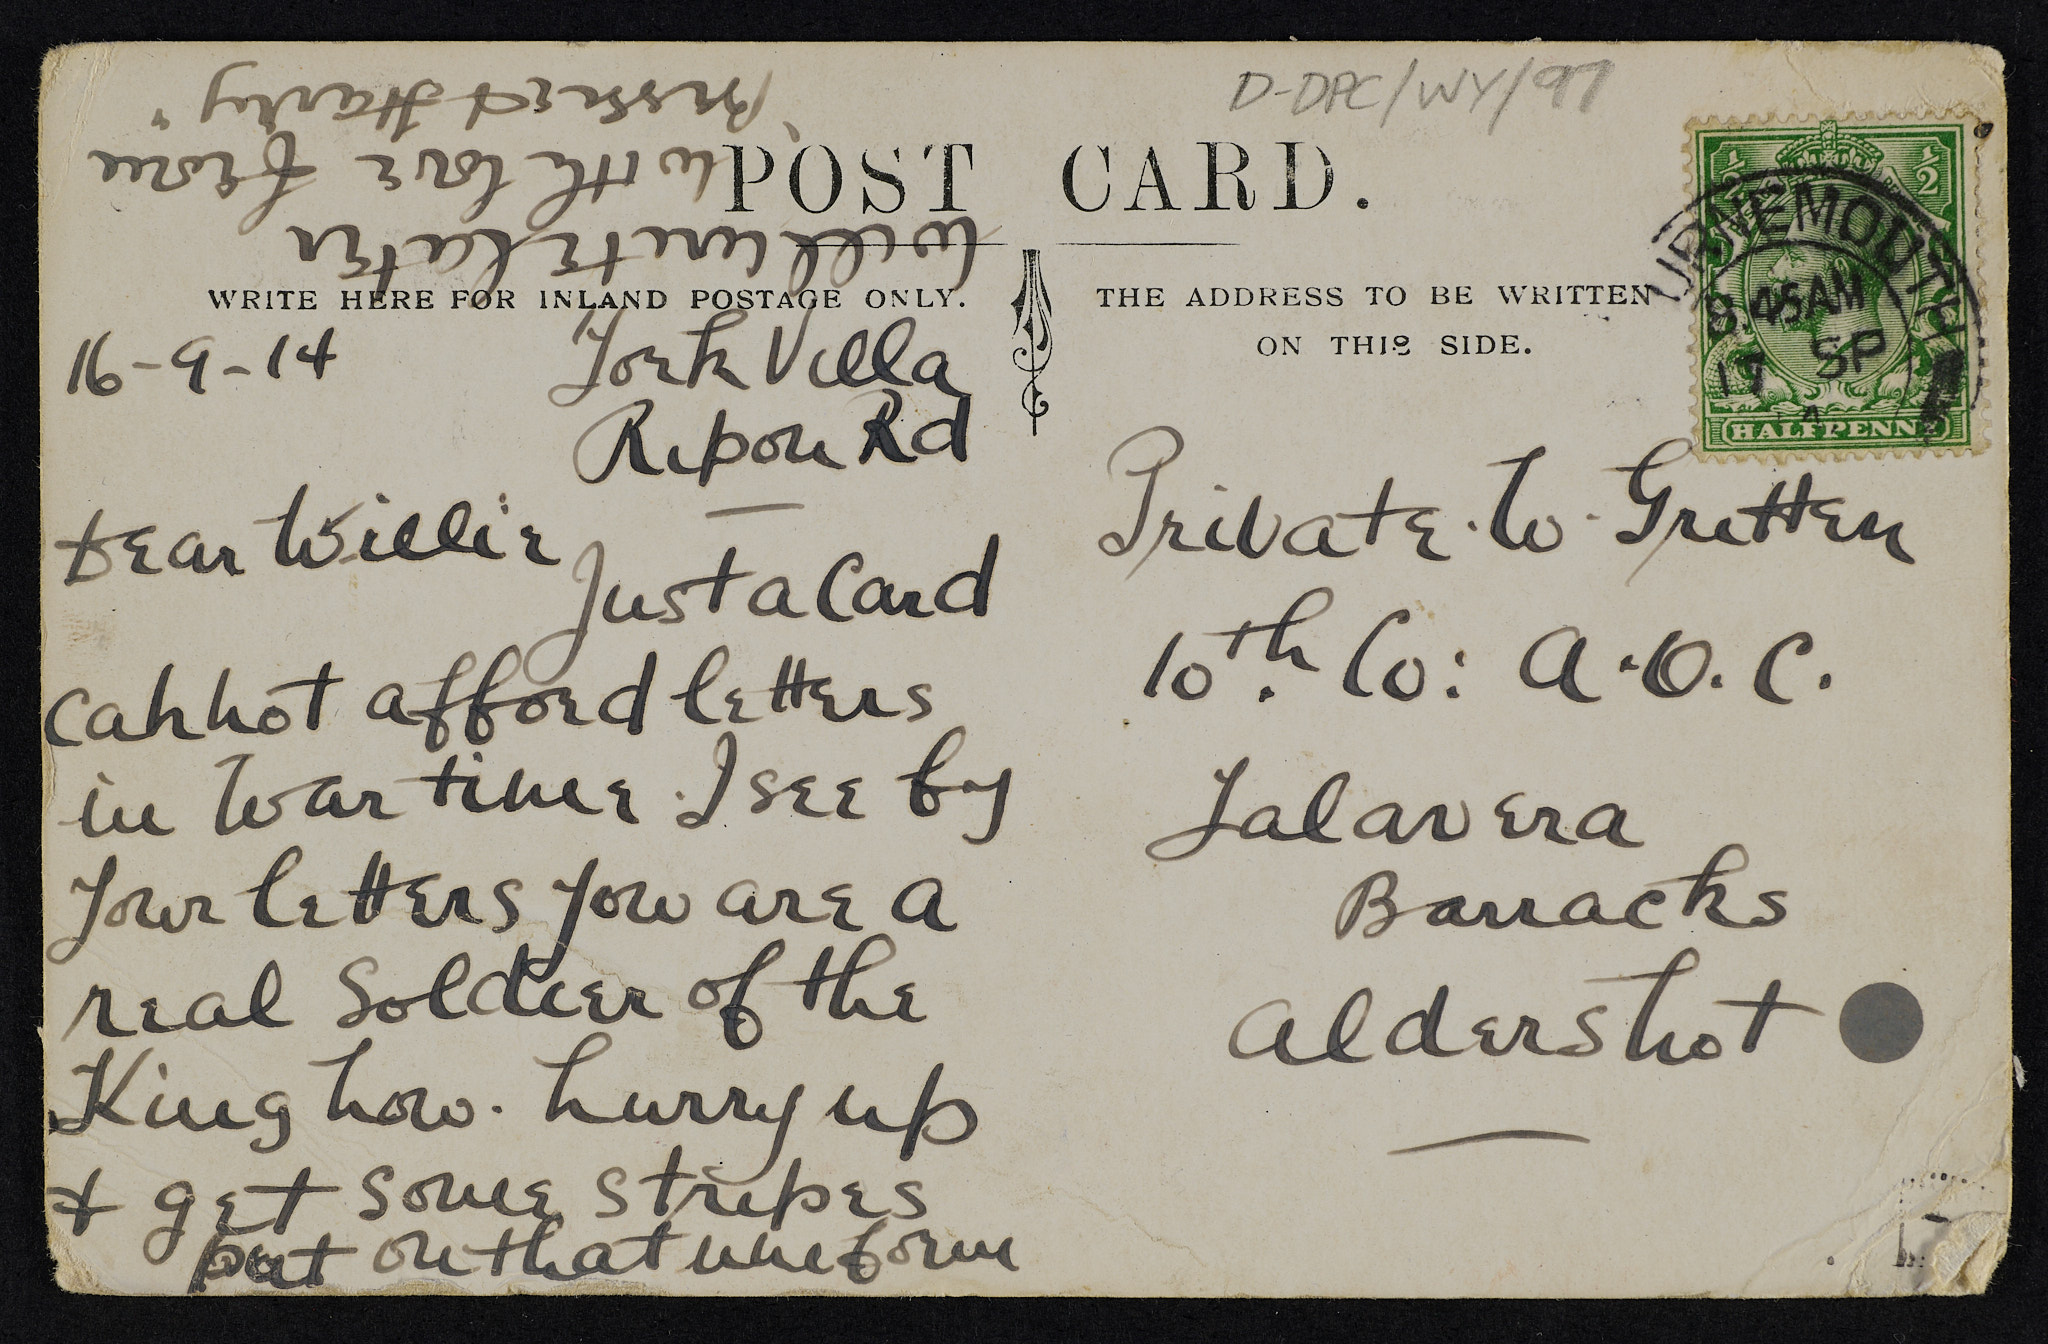 D-DPC/WY/97
POST CARD.
WRITE HERE FOR INLAND POSTAGE ONLY.
THE ADDRESS TO BE WRITTEN
ON THIS SIDE.
16-9-14 York Villa
Ripon Rd
Dear Willie
Just a Card
Cannot afford letters
in War time. I see by
your letters you are a
real Soldier of the
King now. hurry up
+ get some stripes
put on that uniform
Will write later
with love from
"Bessie & Harley"
Private. W. Gretten
10th. Co: A.O.C.
Talavera
Barracks
Aldershot
½ ½
HALFPENNY
URNEMOUTH
8.45AM
17 SP